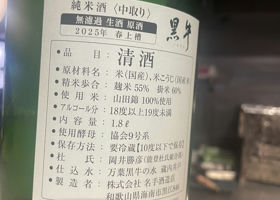 純米酒〈中取り〉
無濾過 生酒 原酒
2025年 春上槽
黒牛
品目:清酒
原材料名:米(国産)、米こうじ(国産米)
精米歩合:麹米 55% 掛米 60%
使用米:山田錦 100%使用
アルコール分:18度以上19度未満
内容量:1.8ℓ
使用酵母:協会9号系
保存方法:要冷蔵【10度以下で保存】
杜氏:岡井勝彦(能登杜氏組合員)
仕込水:万葉黒牛の水 蔵内井戸
製造者:株式会社 名手酒造店
和歌山県海南市黒江846